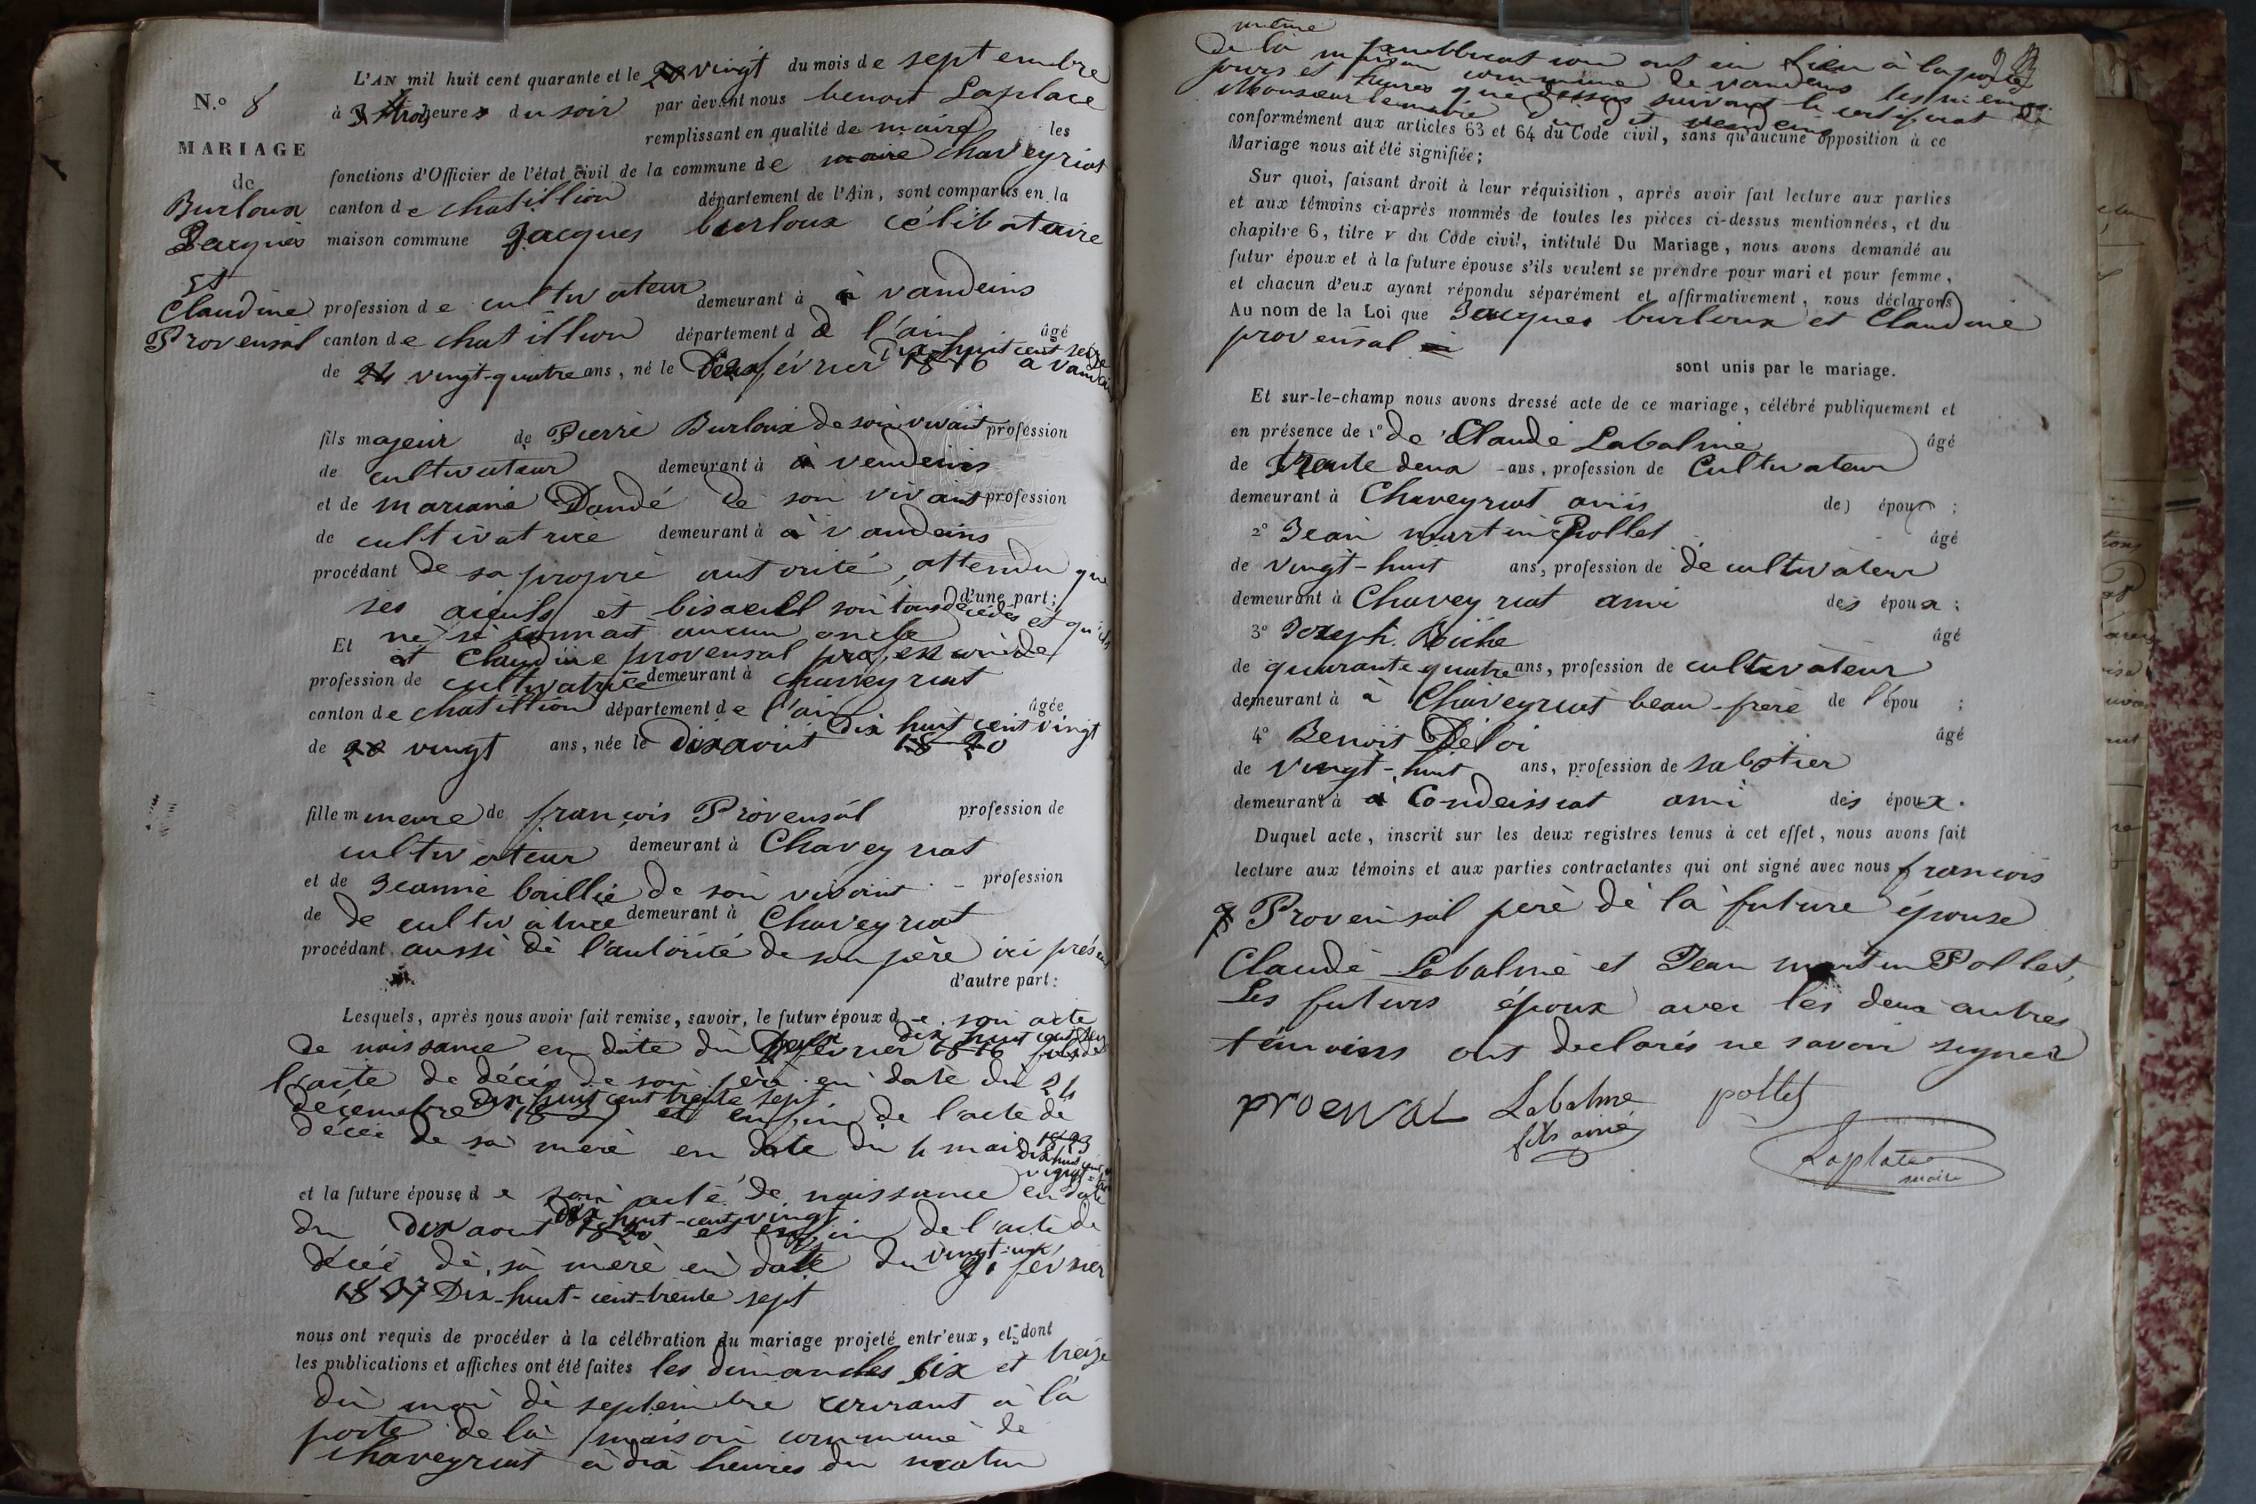 N.º 8
MARIAGE
de
Burloux
Jacques
et
Claudine
Provensal
L'AN mil huit cent quarante et le 20 vingt du mois de septembre
à 3 trois heures du soir par devant nous benoit Laplace
remplissant en qualité de maire les
fonctions d'Officier de l'état civil de la commune de maire chaveyriat
canton de chatillion département de l'Ain, sont comparus en la
maison commune Jacques burloux célibataire
profession de cultivateur demeurant à à vandeins
canton de chatillion département d de l'ain âgé
de 24 vingt-quatre ans, né le deux février 1816 dix huit cent seize a vandeins
fils majeur de Pierre Burloux de soin vivait profession
de cultivateur demeurant à à vendeins
et de mariane Dandé de son vivant profession
de cultivatrice demeurant à à vandeins
procédant de sa propre autorité, attendu que
ses aieuls et bisaeuls soit tous décédés et qu'ils
d'une part;
ne si connait aucun oncle
Et et Claudine provensal
profession de cultivatrice demeurant à chaveyriat
canton de chatillion département de l'ain âgée
de 20 vingt ans, née le dix aout 1820 dix huit cent vingt
fille mineure de françois Provensal profession de
cultivateur demeurant à Chaveyriat
et de Jeanne baillie de soin vivant - profession
de de cultivatrice demeurant à Chaveyriat
procédant aussi de l'autorité de son père ici présent
d'autre part:
Lesquels, après nous avoir fait remise, savoir, le futur époux de son acte
de naissance en date du deux février 1816 dix huit cent seize
l'acte de décès de son père en date du 24
décembre 1837 dix huit cent trente sept et enfin de l'acte de
décès de sa mère en date du 4 mai 1823 dix huit cent vingt trois
et la future épouse de son acte de naissance en date
du dix aout 1820 dix huit-cent-vingt et enfin de l'acte de
décès de sa mère en date du 21 vingt-un février
1837 Dix-huit-cent-trente sept
nous ont requis de procéder à la célébration du mariage projeté entr'eux, et dont
les publications et affiches ont été faites les dimanches six et treize
du moi de septembre courant à la
porte de la maison commune de
chaveyriat à dix heures du matin
même publication ont eu lieu à la porte
de la maison commune de vandeins les mêmes
jours et heures que dessus suivant le certificat de
Monsieur le maire du dit vendeins
conformément aux articles 63 et 64 du Code civil, sans qu'aucune opposition à ce
Mariage nous ait été signifiée;
Sur quoi, faisant droit à leur réquisition, après avoir fait lecture aux parties
et aux témoins ci-après nommés de toutes les pièces ci-dessus mentionnées, et du
chapitre 6, titre v du Code civil, intitulé Du Mariage, nous avons demandé au
futur époux et à la future épouse s'ils veulent se prendre pour mari et pour femme,
et chacun d'eux ayant répondu séparément et affirmativement, nous déclarons
Au nom de la Loi que Jacques burloux et Claudine
provensal
sont unis par le mariage.
Et sur-le-champ nous avons dressé acte de ce mariage, célébré publiquement et
en présence de 1º de Claude Labalme âgé
de trente deux ans, profession de Cultivateur
demeurant à Chaveyriat amis de) époux;
2º Jean martin Pollet âgé
de vingt-huit ans, profession de de cultivateur
demeurant à Chaveyriat ami des époux;
3º Joseph âgé
de quarante quatre ans, profession de cultivateur
demeurant à à Chaveyriat beau-père de l'épou ;
4º Benoit Deloi âgé
de vingt-huit ans, profession de sabotier
demeurant à à Condeissiat ami des époux.
Duquel acte, inscrit sur les deux registres tenus à cet effet, nous avons fait
lecture aux témoins et aux parties contractantes qui ont signé avec nous françois
Provensal père de la future épouse
Claude Labalme et Jean martin Pollet,
Les futurs époux avec les deux autres
témoins ont declarés ne savoir signer
proenval Labalme pollet
fils ainé
Laplace
maire